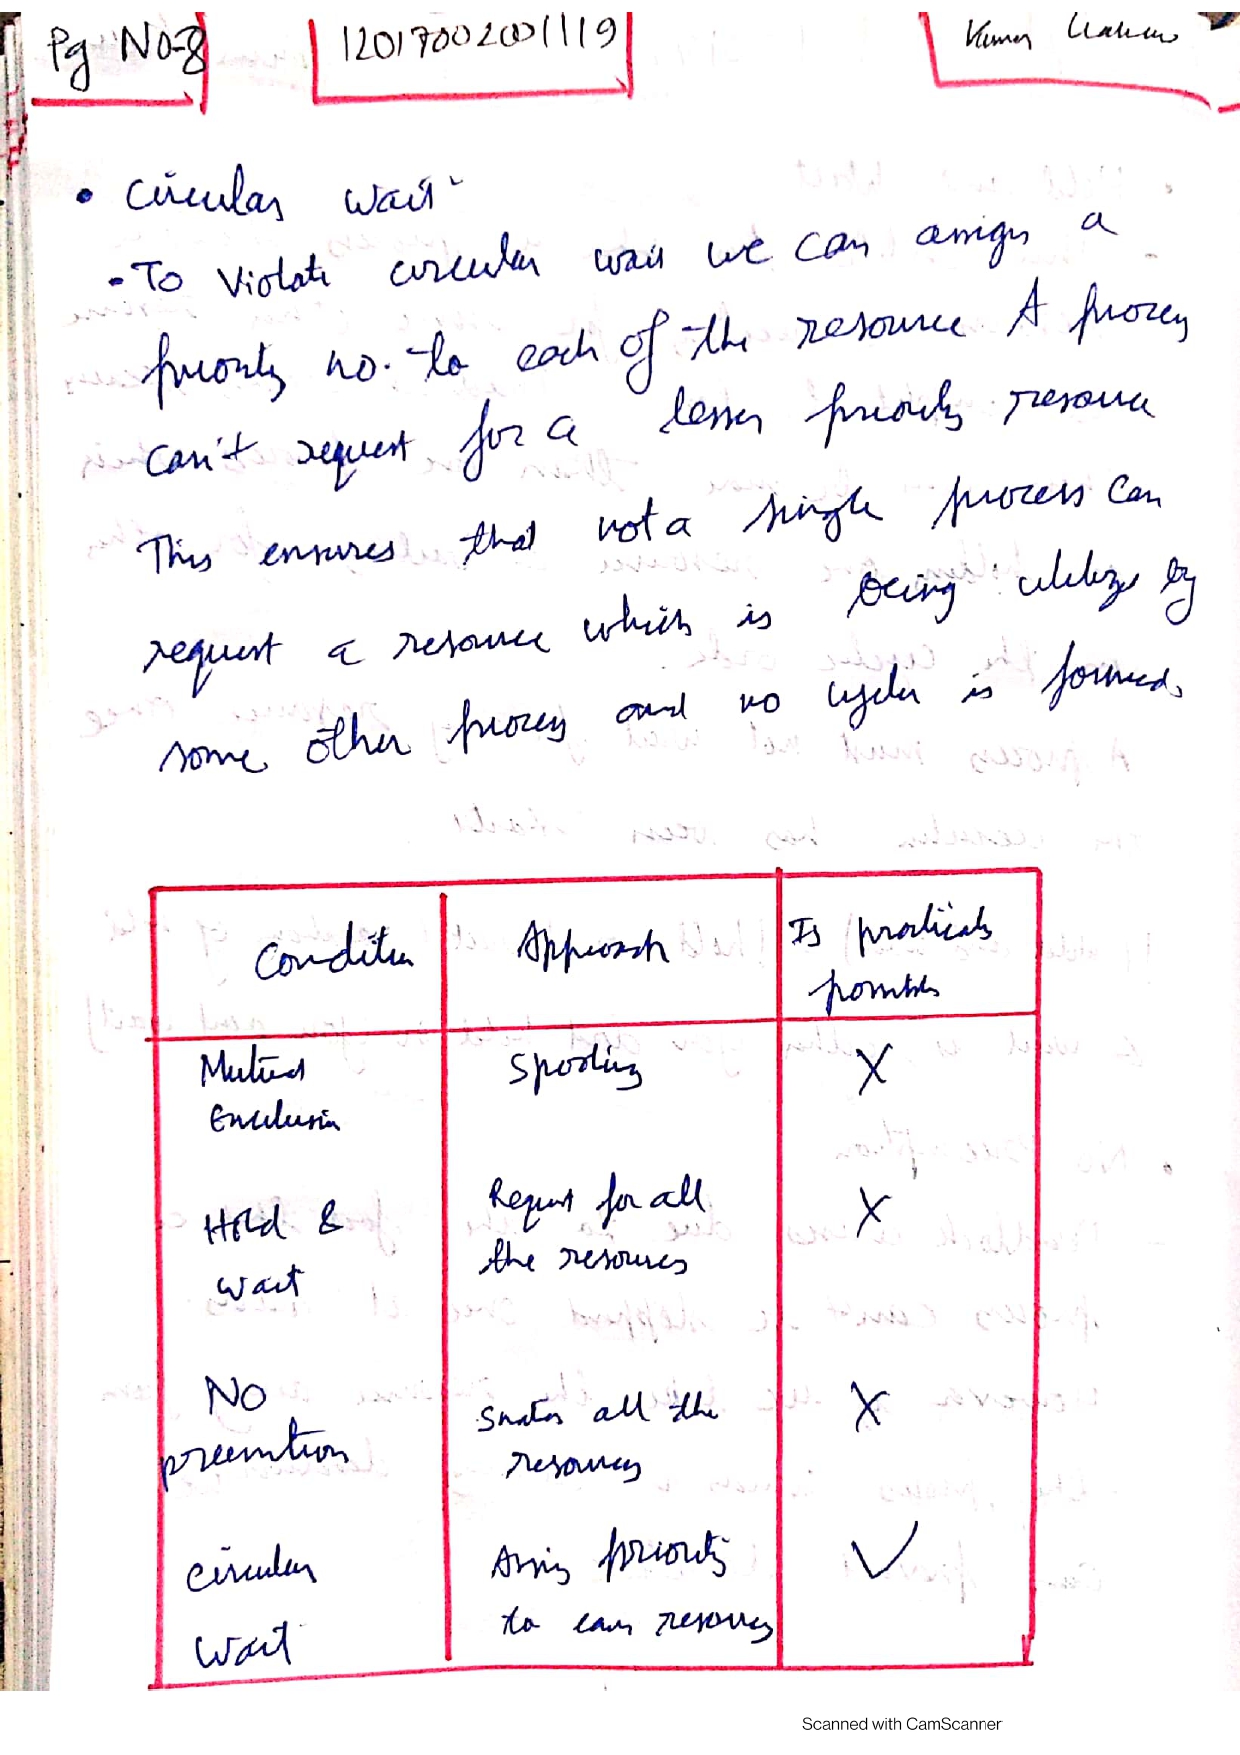 Pg No-8
12017002001119
Kumar
• Circular wait
- To violate circular wait we can assign a
priority no. to each of the resource A process
can't request for a lesser priority resource
This ensures that not a single process can
request a resource which is being utilize by
some other process and no cycle is formed.
Condition Approach Is practicals possible
Mutual Exclusion Spooling X
Hold & wait Request for all the resources X
NO preemtion Snatch all the resources X
circular wait Assign priority to each resources ✓
Scanned with CamScanner